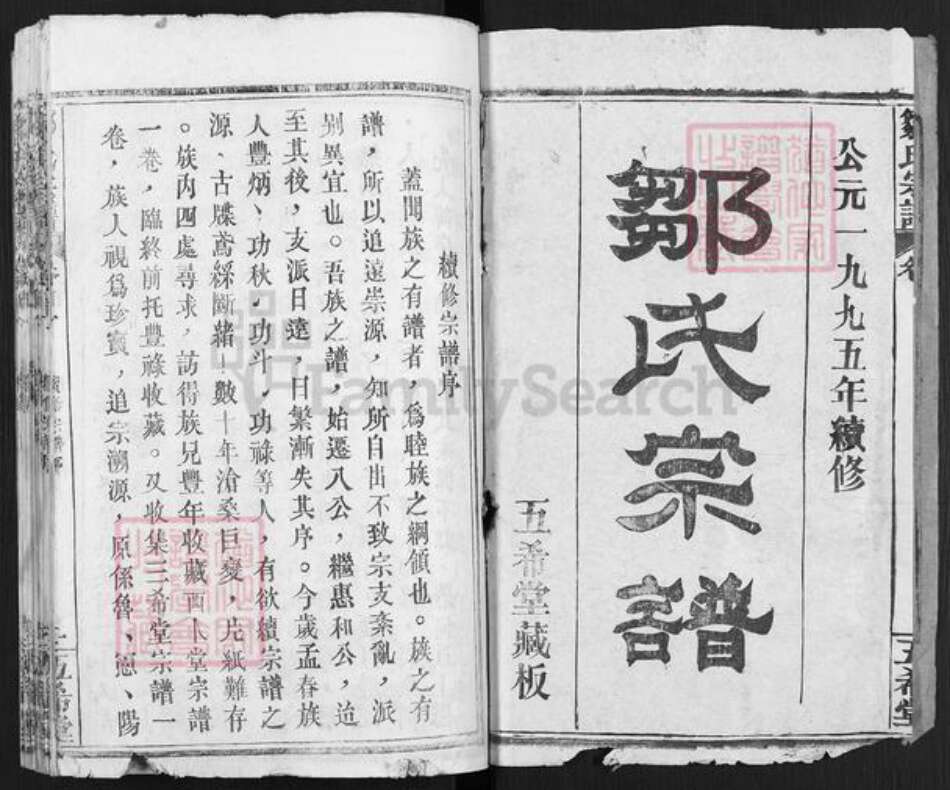 鄒氏宗譜
卷
五希堂
公元一九九五年續修
鄒氏宗譜
五希堂藏板
續修宗譜序
蓋聞族之有譜者，爲睦族之綱領也。族之有
譜，所以追遠崇源，知所自出不致宗支紊亂，派
别異宜也。吾族之譜，始遷八公，繼惠和公，迨
至其後，支派日遠，日繁漸失其序。今歲孟春族
人豐炳、功秋，功斗，功祿等人，有欲續宗譜之
源、古牒鳶綵斷緒！數十年滄桑巨變，片紙難存
。族内四處尋求，訪得族兄豐年收藏西人堂宗譜
一卷，臨終前托豐祿收藏。又收集三希堂宗譜一
卷，族人視爲珍寶，追宗溯源，原係魯、憩、陽
五希堂
FamilySearch